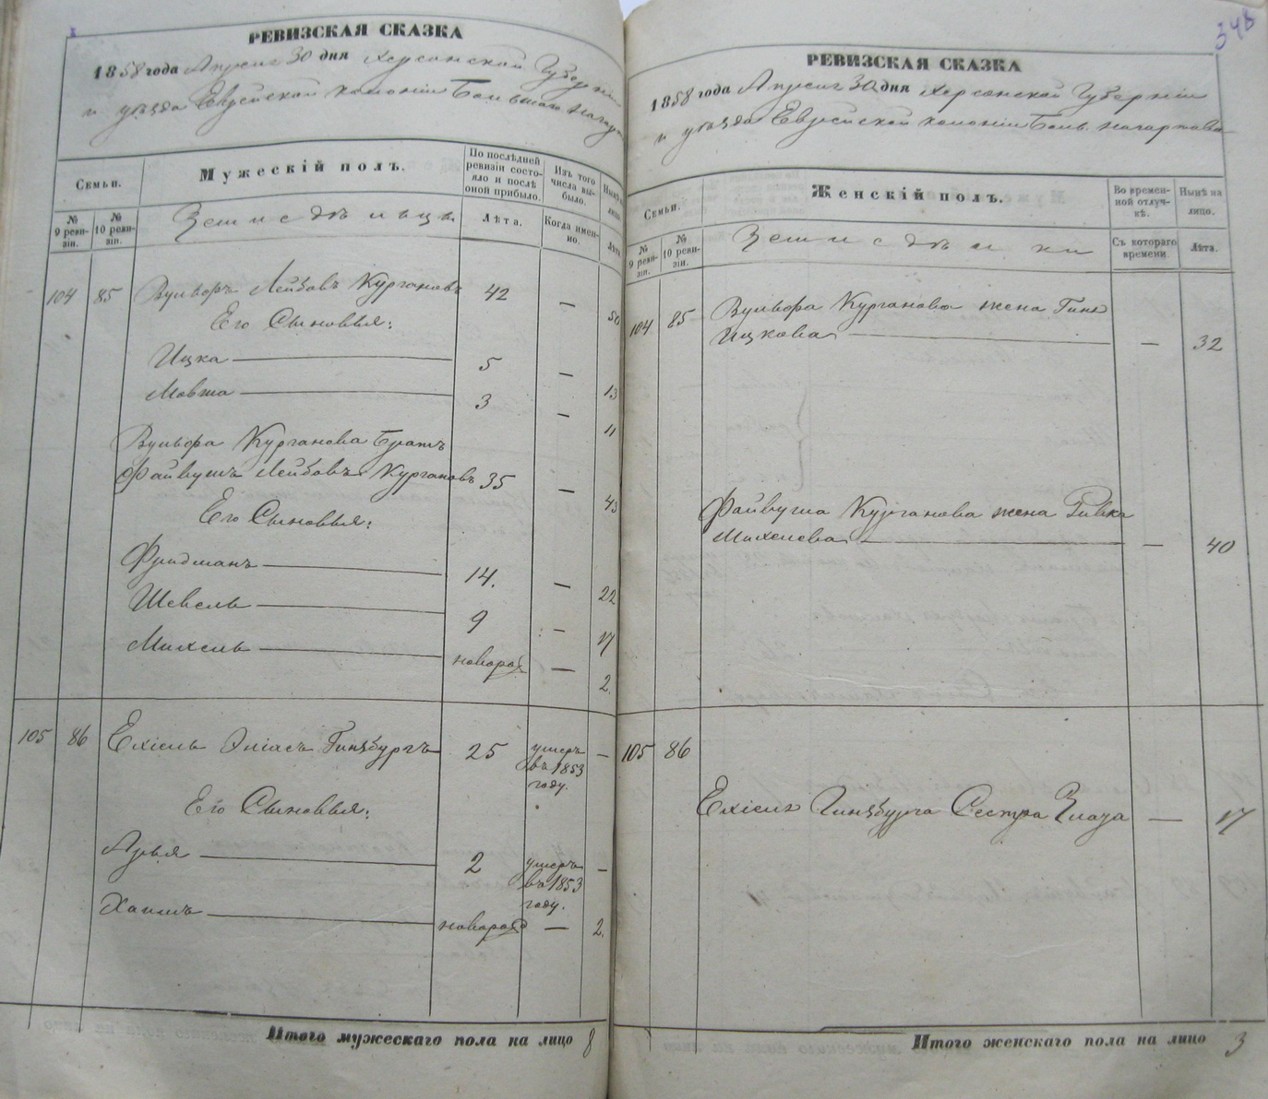 РЕВИЗСКАЯ СКАЗКА
1858 года Апреля 30 дня Херсонской Губерніи
и уѣзда Еврейской колоніи Большаго Нагар
Семьи.
Мужескій полъ.
По послѣдней ревизіи состояло и послѣ оной прибыло.
Изъ того числа выбыло.
№ 9 ревизіи.
№ 10 ревизіи.
Земледѣльцы.
Лѣта.
Когда именно.
Лѣта
104 85 Вульфъ Лейбовъ Кургановъ 42 — 50
Его Сыновья:
Ицка — 5 — 13
Мовша — 3 — 11
Вульфа Курганова Братъ
Файвушъ Лейбовъ Кургановъ 35 — 43
Его Сыновья:
Фридманъ — 14. — 22
Шевель — 9 — 17
Михель — новорожд — 2.
105 86 Ехіель Эліасъ Гинзбургъ 25 умеръ въ 1853 году. —
Его Сыновья:
Арья — 2 умеръ въ 1853 году. —
Хаимъ — новорожд — 2.
Итого мужескаго пола на лицо 8
348
РЕВИЗСКАЯ СКАЗКА
1858 года Апреля 30 дня Херсонской Губерніи
и уѣзда Еврейской колоніи Боль. Нагартова
Семьи.
Женскій полъ.
Во временной отлучкѣ.
Нынѣ на лицо.
№ 9 ревизіи.
№ 10 ревизіи.
Земледѣлки
Съ котораго времени.
Лѣта.
104 85 Вульфа Курганова жена
Ицкова — — 32
Файвуша Курганова жена Ривка
Михелева — — 40
105 86
Ехіеля Гинзбурга Сестра Злата — 17
Итого женскаго пола на лицо 3